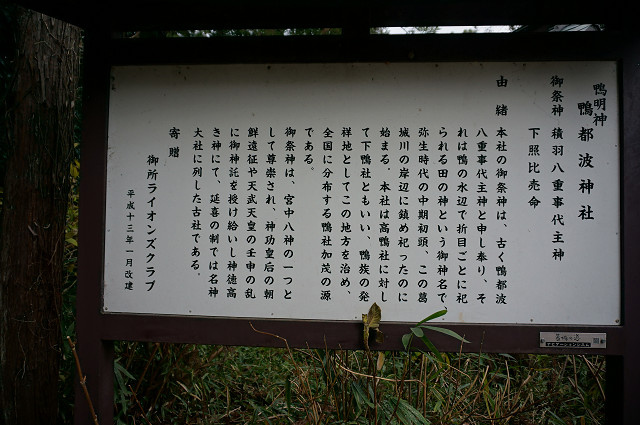 鴨明神
鴨都波神社
御祭神　積羽八重事代主神
下照比売命
由緒　本社の御祭神は、古く鴨都波
八重事代主神と申し奉り、そ
れは鴨の水辺で折目ごとに祀
られる田の神という御神名で、
弥生時代の中期初頭、この葛
城川の岸辺に鎮め祀ったのに
始まる。本社は高鴨社に対し
て下鴨社ともいい、鴨族の発
祥地としてこの地方を治め、
全国に分布する鴨社加茂の源
である。
御祭神は、宮中八神の一つと
して尊崇され、神功皇后の朝
鮮遠征や天武天皇の壬申の乱
に御神託を授け給いし神徳高
き神にて、延喜の制では名神
大社に列した古社である。
寄贈
御所ライオンズクラブ
平成十三年一月改建
葛城の道